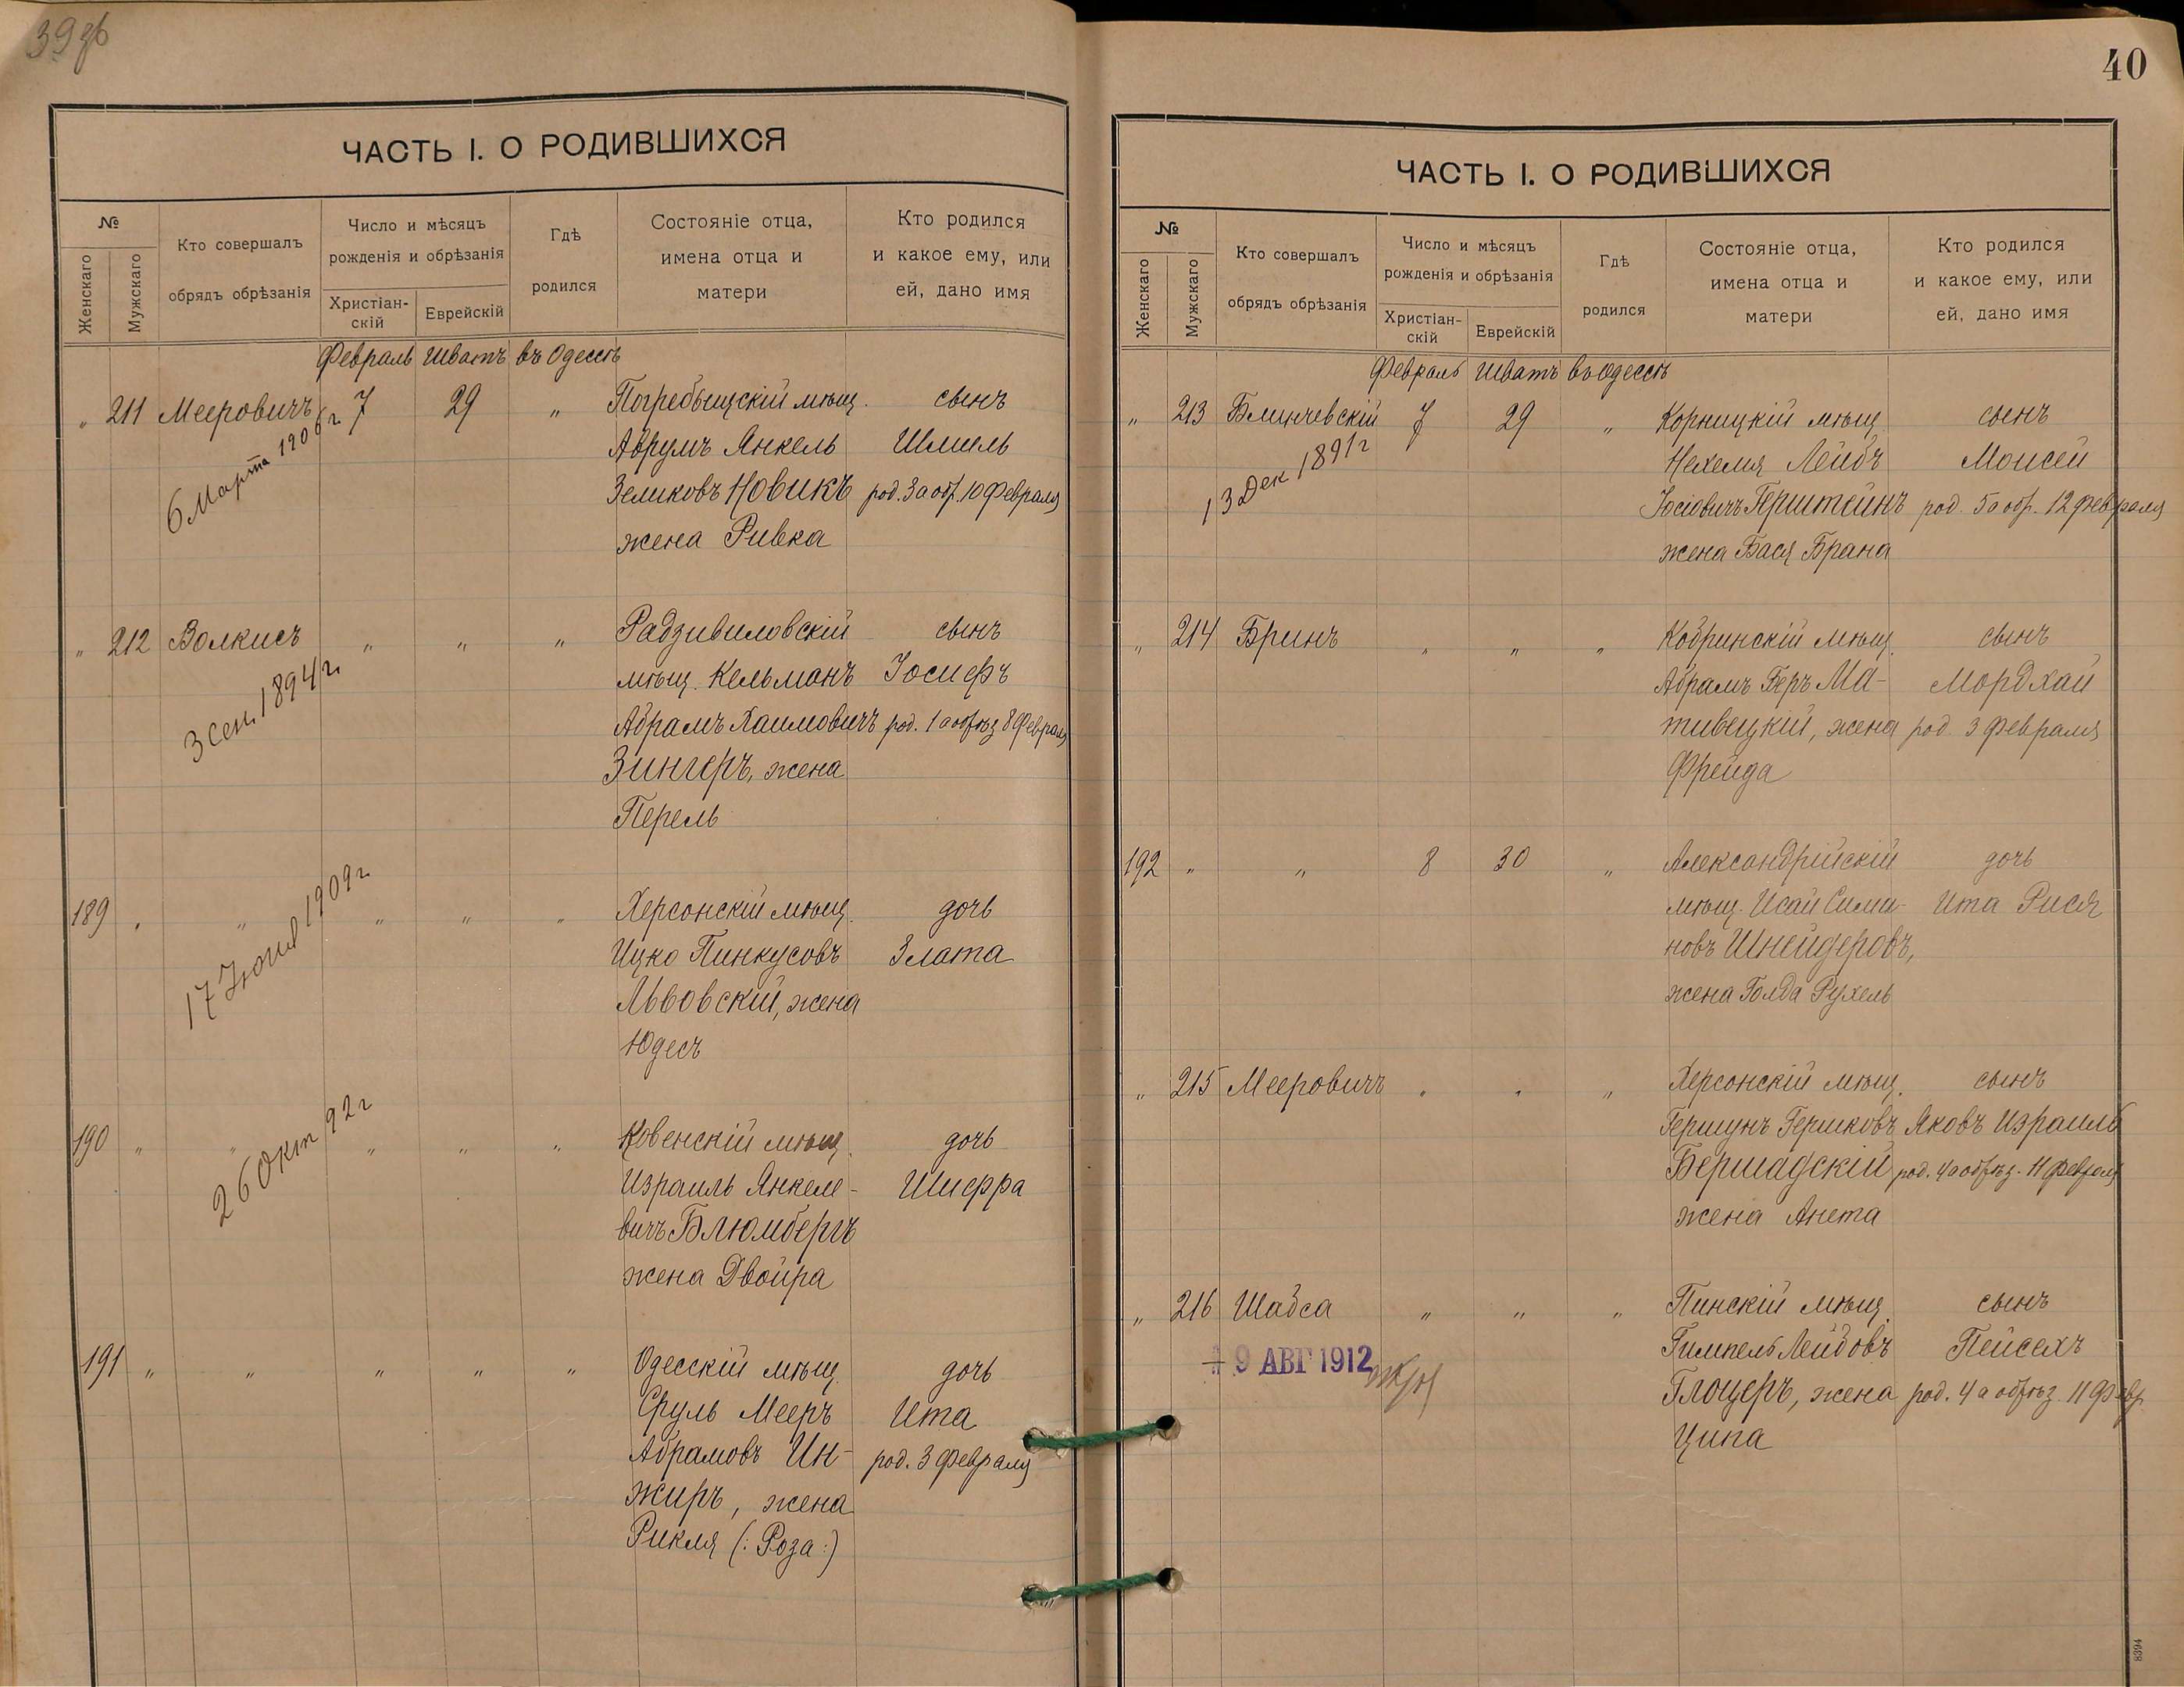 39 об
ЧАСТЬ I. О РОДИВШИХСЯ
№
Женскаго
Мужскаго
Кто совершалъ
обрядъ обрѣзанія
Число и мѣсяцъ
рожденія и обрѣзанія
Христіан-
скій
Еврейскій
Гдѣ
родился
Состояніе отца,
имена отца и
матери
Кто родился
и какое ему, или
ей, дано имя
Февраль Шватъ въ Одессѣ
„ 211 Мееровичъ 7 29 „ Погребищскій мѣщ. сынъ
6 Марта 1906 г
Аврумъ Янкель Шмиель
Зеликовъ Новикъ род. 3 а обр. 10 Февраля
жена Ривка
„ 212 Волкисъ „ „ „ Радзивиловскій сынъ
3 сен. 1894 г.
мѣщ. Кельманъ Іосифъ
Абрамъ Хаимовичъ род. 1 а обрѣз 8 Февраля
Зингеръ, жена
Перель
189 „ „ „ „ „ Херсонскій мѣщ. дочь
17 Іюня 1909 г
Ицко Пинкусовъ Злата
Львовскій, жена
Юдесъ
190 „ „ „ „ „ Ковенскій мѣщ. дочь
26 Окт 92 г
Израиль Янкеле- Шифра
вичъ Блюмбергъ
жена Двойра
191 „ „ „ „ „ Одесскій мѣщ. дочь
Сруль Мееръ Ита
Абрамовъ Ин- род. 3 Февраля
жиръ, жена
Рикля (: Роза :)
40
ЧАСТЬ I. О РОДИВШИХСЯ
№
Женскаго
Мужскаго
Кто совершалъ
обрядъ обрѣзанія
Число и мѣсяцъ
рожденія и обрѣзанія
Христіан-
скій
Еврейскій
Гдѣ
родился
Состояніе отца,
имена отца и
матери
Кто родился
и какое ему, или
ей, дано имя
Февраль Шватъ въ Одессѣ
„ 213 Блинчевскій 7 29 „ Корницкій мѣщ. сынъ
13 Дек 1891 г
Нехемія Лейбъ Моисей
Іосіовичъ Герштейнъ род. 5 а обр. 12 февраля
жена Бася Брана
„ 214 Бринъ „ „ „ Кобринскій мѣщ. сынъ
Абрамъ Беръ Ма- Мордхай
тивецкій, жена род 3 февраля
Фрейда
192 „ „ 8 30 „ Александрійскій дочь
мѣщ. Исай Сима- Ита Рися
новъ Шнейдеровъ,
жена Голда Рухель
„ 215 Мееровичъ „ „ „ Херсонскій мѣщ. сынъ
Гершунъ Гершковъ Яковъ Израиль
Бершадскій род. 4 а обрѣз. 11 февраля
жена Анета
„ 216 Шабса „ „ „ Пинскій мѣщ. сынъ
9 АВГ 1912
Гимпель Лейбовъ Пейсехъ
Глоцеръ, жена род. 4 а обрѣз. 11 Февр
Ципа
8394